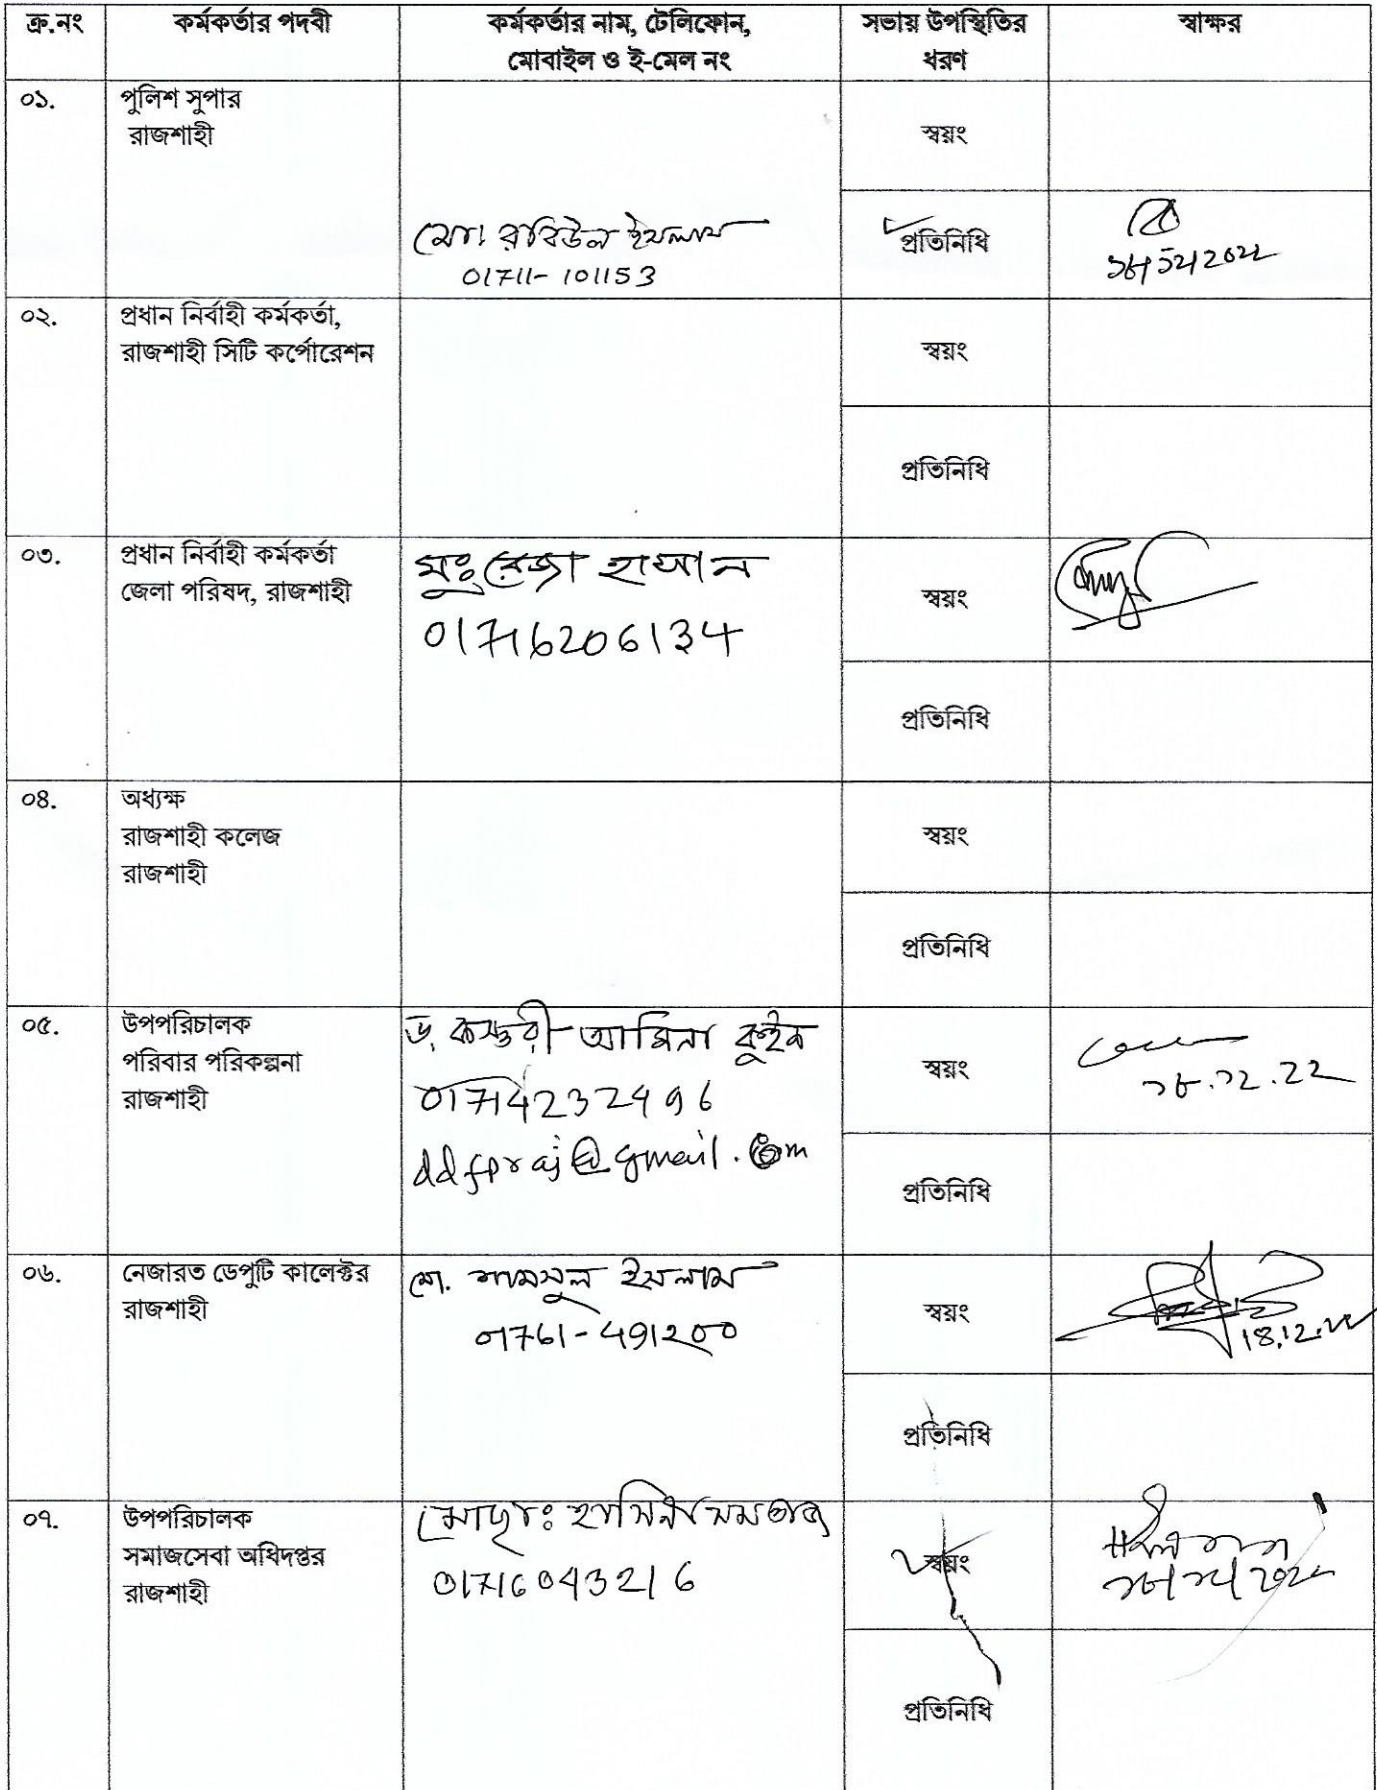 ক্র.নং কর্মকর্তার পদবী কর্মকর্তার নাম, টেলিফোন, সভায় উপস্থিতির স্বাক্ষর
মোবাইল ও ই-মেল নং ধরণ
০১. পুলিশ সুপার
রাজশাহী
স্বয়ং
মো: রবিউল ইসলাম
01711-101153
প্রতিনিধি
০২. প্রধান নির্বাহী কর্মকর্তা,
রাজশাহী সিটি কর্পোরেশন
স্বয়ং
প্রতিনিধি
০৩. প্রধান নির্বাহী কর্মকর্তা
জেলা পরিষদ, রাজশাহী
মুঃ রেজা হাসান
01716206134
স্বয়ং
প্রতিনিধি
০৪. অধ্যক্ষ
রাজশাহী কলেজ
রাজশাহী
স্বয়ং
প্রতিনিধি
০৫. উপপরিচালক
পরিবার পরিকল্পনা
রাজশাহী
ড. কস্তুরী আমিনা কুইন
ddfpraj@gmail.com
স্বয়ং
১৮.১২.22
প্রতিনিধি
০৬. নেজারত ডেপুটি কালেক্টর
রাজশাহী
মো. শামসুল ইসলাম
01761-491200
স্বয়ং
18.12.22
প্রতিনিধি
০৭. উপপরিচালক
সমাজসেবা অধিদপ্তর
রাজশাহী
মোছাঃ হাসিনা মমতাজ
01716043216
স্বয়ং
প্রতিনিধি